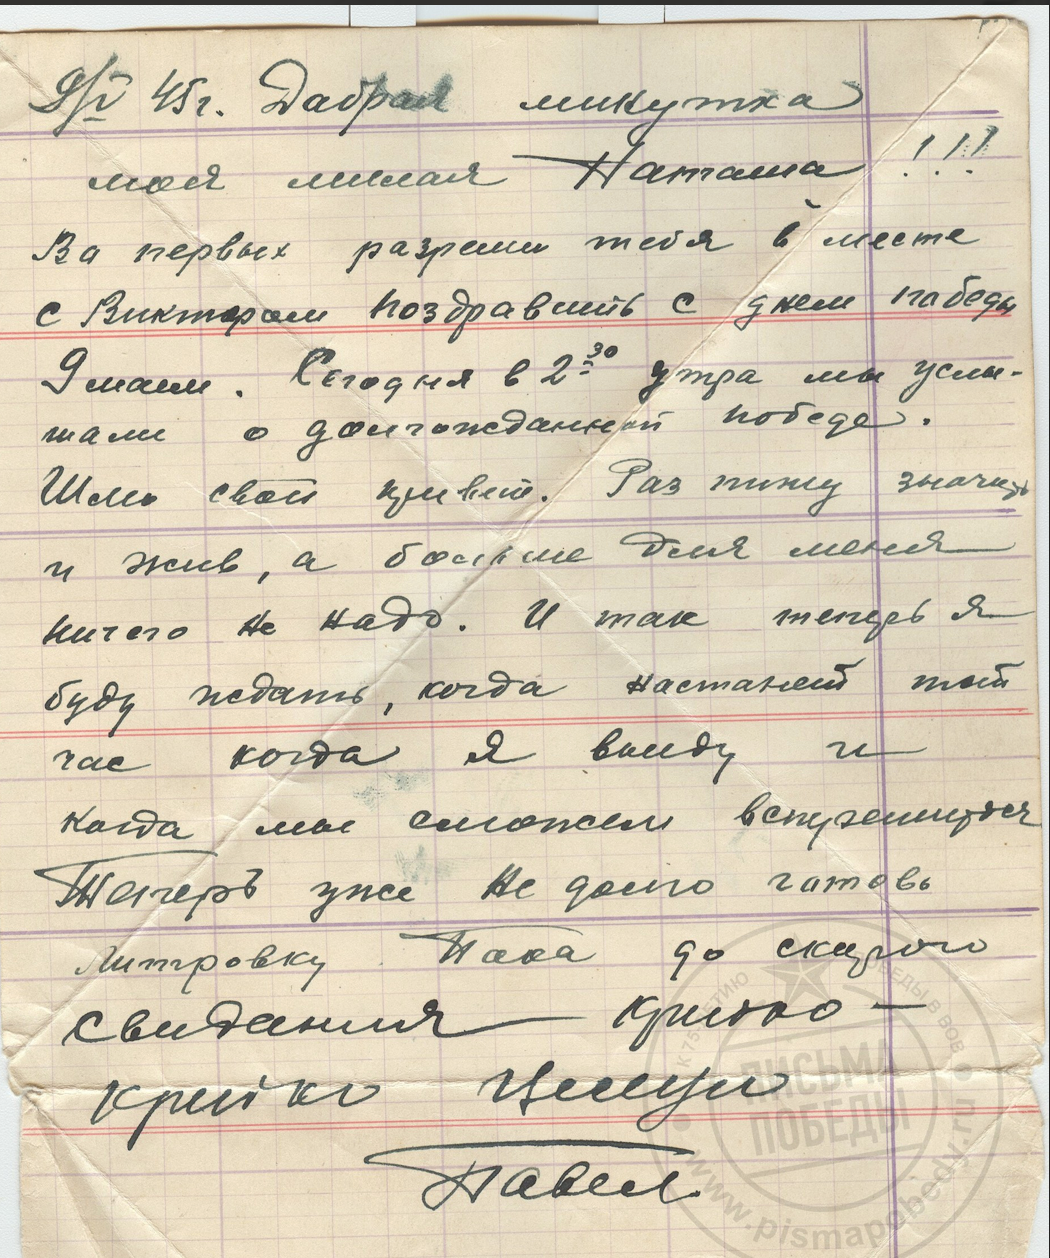 9/V 45г. Дабрая минутка
моя милая Наташа !!!
Ва первых разреши тебя в месте
с Виктором поздравить с днем победы
9 маем. Сегодня в 2 30 утра мы услы-
шали о долгожданной победе.
Шлю свой привет. Раз пишу значить
и жив, а больше для меня
ничего не надо. И так теперь я
буду ждать, когда настанет тот
час когда я выиду и
когда мы сможем встретиться
Теперь уже не долго готовь
литровку Пока до скорого
свидания крепко —
крепко Целую
Павел.
К 75-ЛЕТИЮ ПОБЕДЫ В ВОВ
ПИСЬМА
ПОБЕДЫ
www.pismapobedy.ru